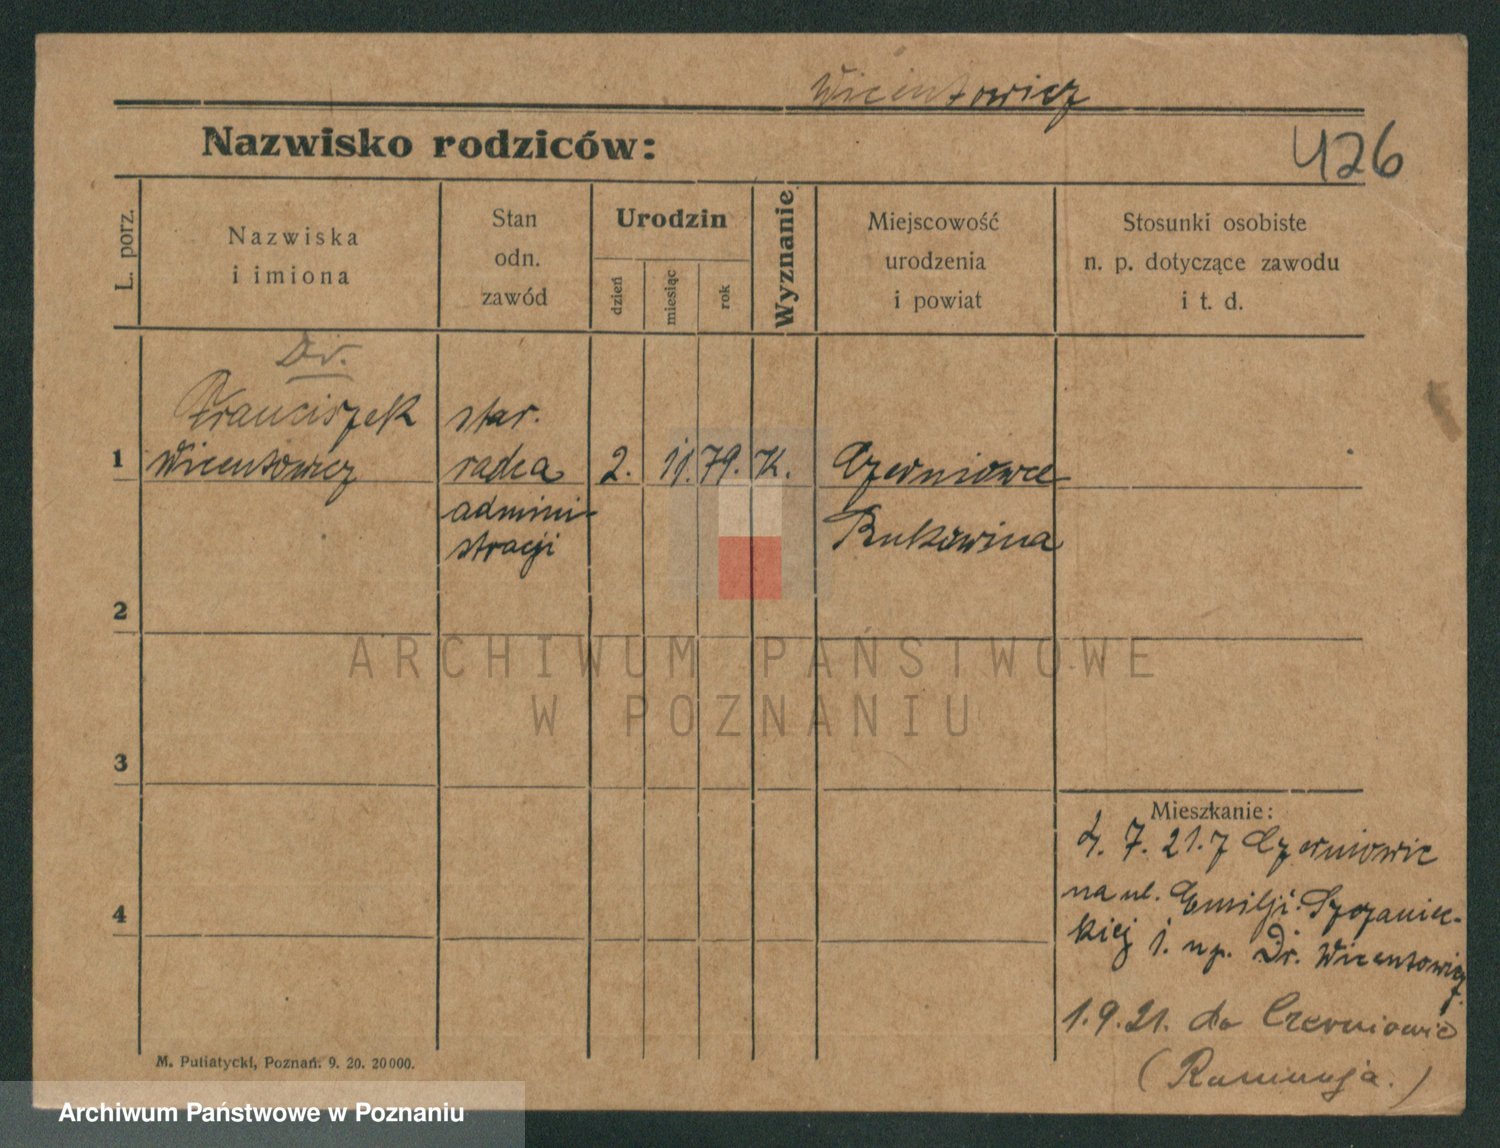 Wicentowicz
Nazwisko rodziców:
426
L. porz.
Nazwiska
i imiona
Stan
odn.
zawód
Urodzin
dzień
miesiąc
rok
Wyznanie
Miejscowość
urodzenia
i powiat
Stosunki osobiste
n. p. dotyczące zawodu
i t. d.
Dr.
Franciszek
Wicentowicz
1
star.
radca
admini-
stracji
2. 11. 79. K.
Czerniowce
Bukowina
2
3
4
ARCHIWUM PAŃSTWOWE
W POZNANIU
Mieszkanie:
4. 7. 21. z Czerniowic
na ul. Emilji Szczaniec-
kiej j. np. Dr. Wicentowicz
1. 9. 21. do Czerniowic
(Rumunja.)
M. Putiatycki, Poznań. 9. 20. 20000.
Archiwum Państwowe w Poznaniu